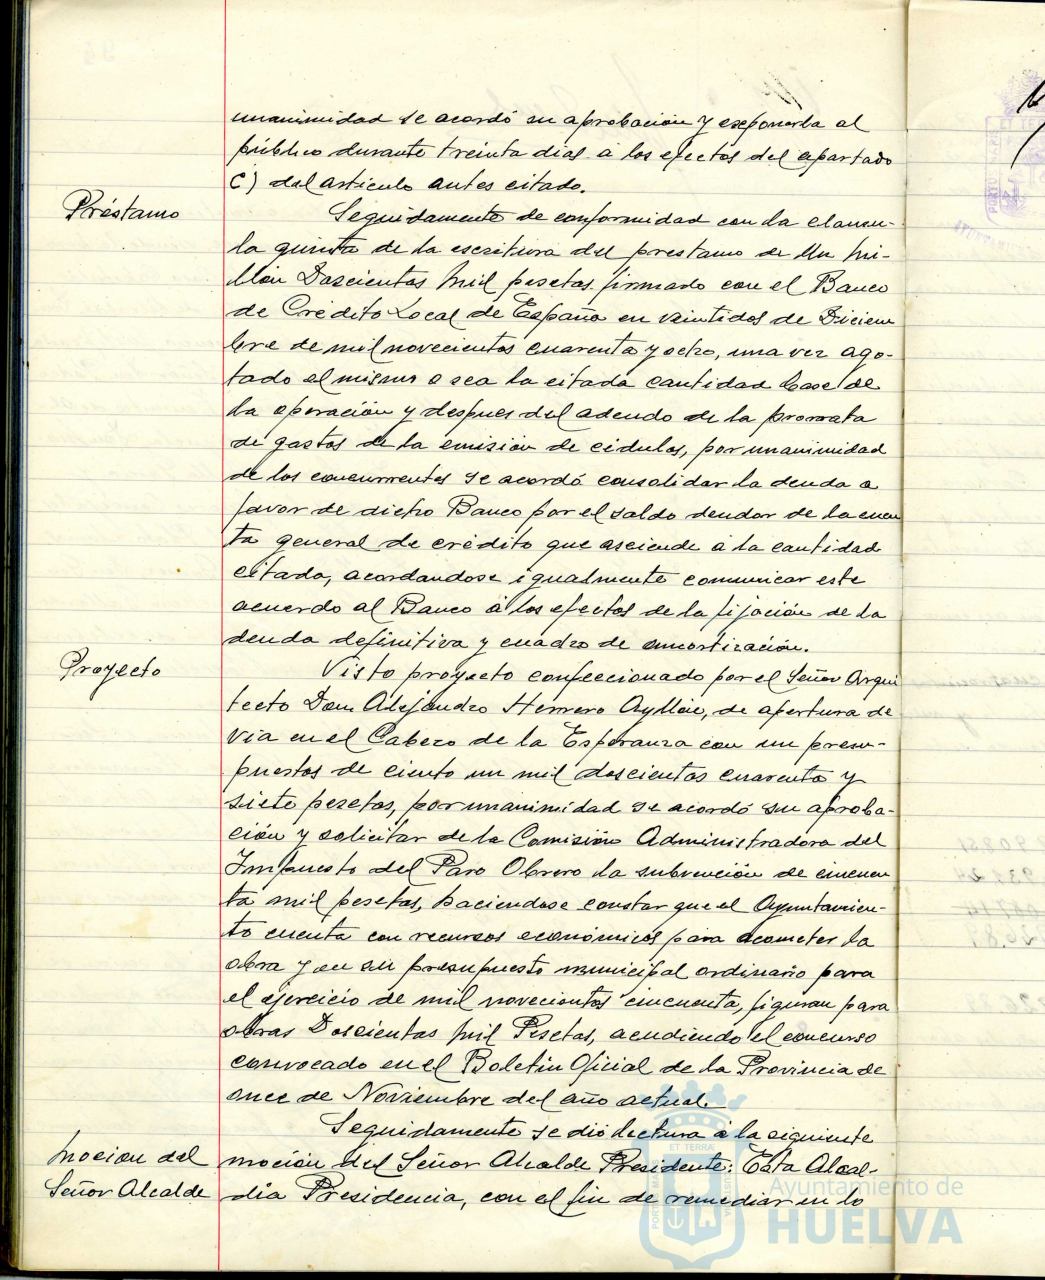 unanimidad se acordó su aprobación y exponerla al
público durante treinta dias a los efectos del apartado
C) del articulo antes citado.
Préstamo
Seguidamente de conformidad con la clausu-
la quinta de la escritura del prestamo de Un Mi-
llón Doscientas Mil pesetas firmado con el Banco
de Crédito Local de España en veintidos de Diciem
bre de mil novecientos cuarenta y ocho, una vez ago-
tado el mismo o sea la citada cantidad base de
la operación y despues del adeudo de la prorrata
de gastos de la emisión de cédulas, por unanimidad
de los concurrentes se acordó consolidar la deuda a
favor de dicho Banco por el saldo deudor de la cuen
ta general de crédito que asciende a la cantidad
citada, acordandose igualmente comunicar este
acuerdo al Banco a los efectos de la fijación de la
deuda definitiva y cuadro de amortización.
Proyecto
Visto proyecto confeccionado por el Señor Arqui
tecto Don Alejandro Herrero Ayllón, de apertura de
via en el Cabezo de la Esperanza con un presu-
puestos de ciento un mil doscientas cuarenta y
siete pesetas, por unanimidad se acordó su aproba-
ción y solicitar de la Comisión Administradora del
Impuesto del Paro Obrero la subvención de cincuen
ta mil pesetas, haciendose constar que el Ayuntamien-
to cuenta con recursos económicos para acometer la
obra y en su presupuesto municipal ordinario para
el ejercicio de mil novecientos cincuenta, figuran para
obras Doscientas Mil Pesetas, acudiendo el concurso
convocado en el Boletin Oficial de la Provincia de
once de Noviembre del año actual.
Moción del
Señor Alcalde
Seguidamente se dió lectura a la siguiente
moción del Señor Alcalde Presidente: Esta Alcal-
dia Presidencia, con el fin de remediar en lo
Ayuntamiento de
HUELVA